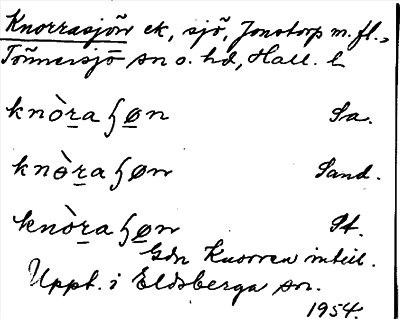 Knorrasjön ek, sjö, Jonstorp m.fl.,
Tönnersjö sn o. hd, Hall. l
knòra ʃøn Sa.
knɵ̀ra ʃøn Sand.
knòra ʃøn St.
Gdn Knorren intill.
Uppt. i Eldsberga sn.
1954.